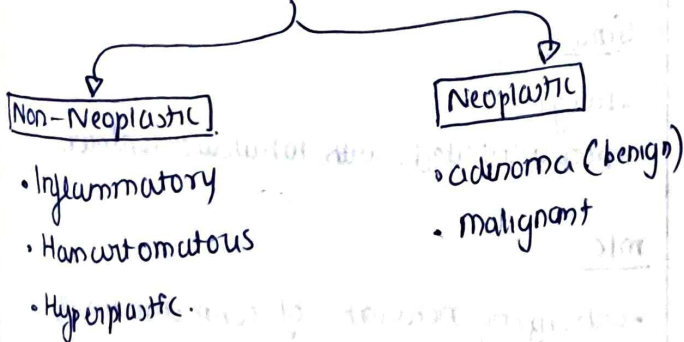 Non-Neoplastic
• Inflammatory
• Hamartomatous
• Hyperplastic.
Neoplastic
• adenoma (benign)
• Malignant